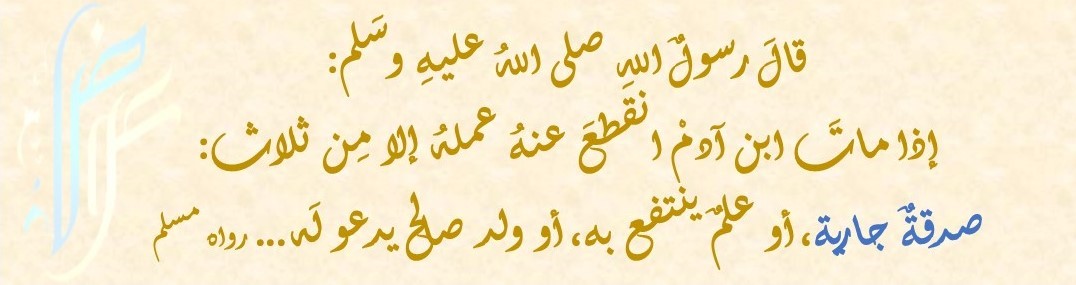 قالَ رسولٌ اللهِ صلى اللهُ عليهِ وسَلم:
إذا ماتَ ابن آدمْ انقَطعَ عنهُ عملهُ إلا مِن ثلاث:
صدقةٌ جارية، أو علمٌ ينتفع به، أو ولد صالح يدعو لَه... رواه مسلم